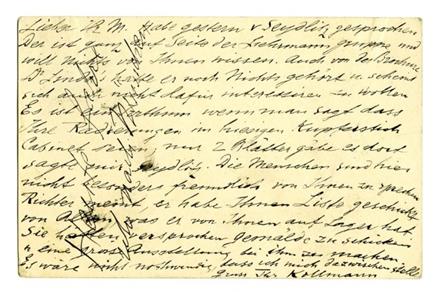 Lieber H. M. Habe gestern v Seydlitz gesprochen
Der ist ganz auf Seite der Liebermann gruppe und
will nichts von Ihnen wissen. Auch von der Brochure
Dr Linde's hatte er noch Nichts gehört u schien
sich auch nicht dafür interessiren zu wollen
Es ist wenn man sagt dass
Ihre Radierungen im hiesigen Kupferstich
Cabinet seien, nur 2 Blätter gäbe es dort
sagte mir Seydlitz. Die Menschen sind hier
nicht besonders freundlich von Ihnen zu sprechen
Richter meint er habe Ihnen Liste geschickt
von was er von Ihnen auf Lager hat
Sie hatten versprochen gemälde zu schicken
u eine gross Ausstellung bei ihm zu machen
Es wäre nicht nothwendig dass ich mich dazwischen stelle
Gruss Ihr Kollmann